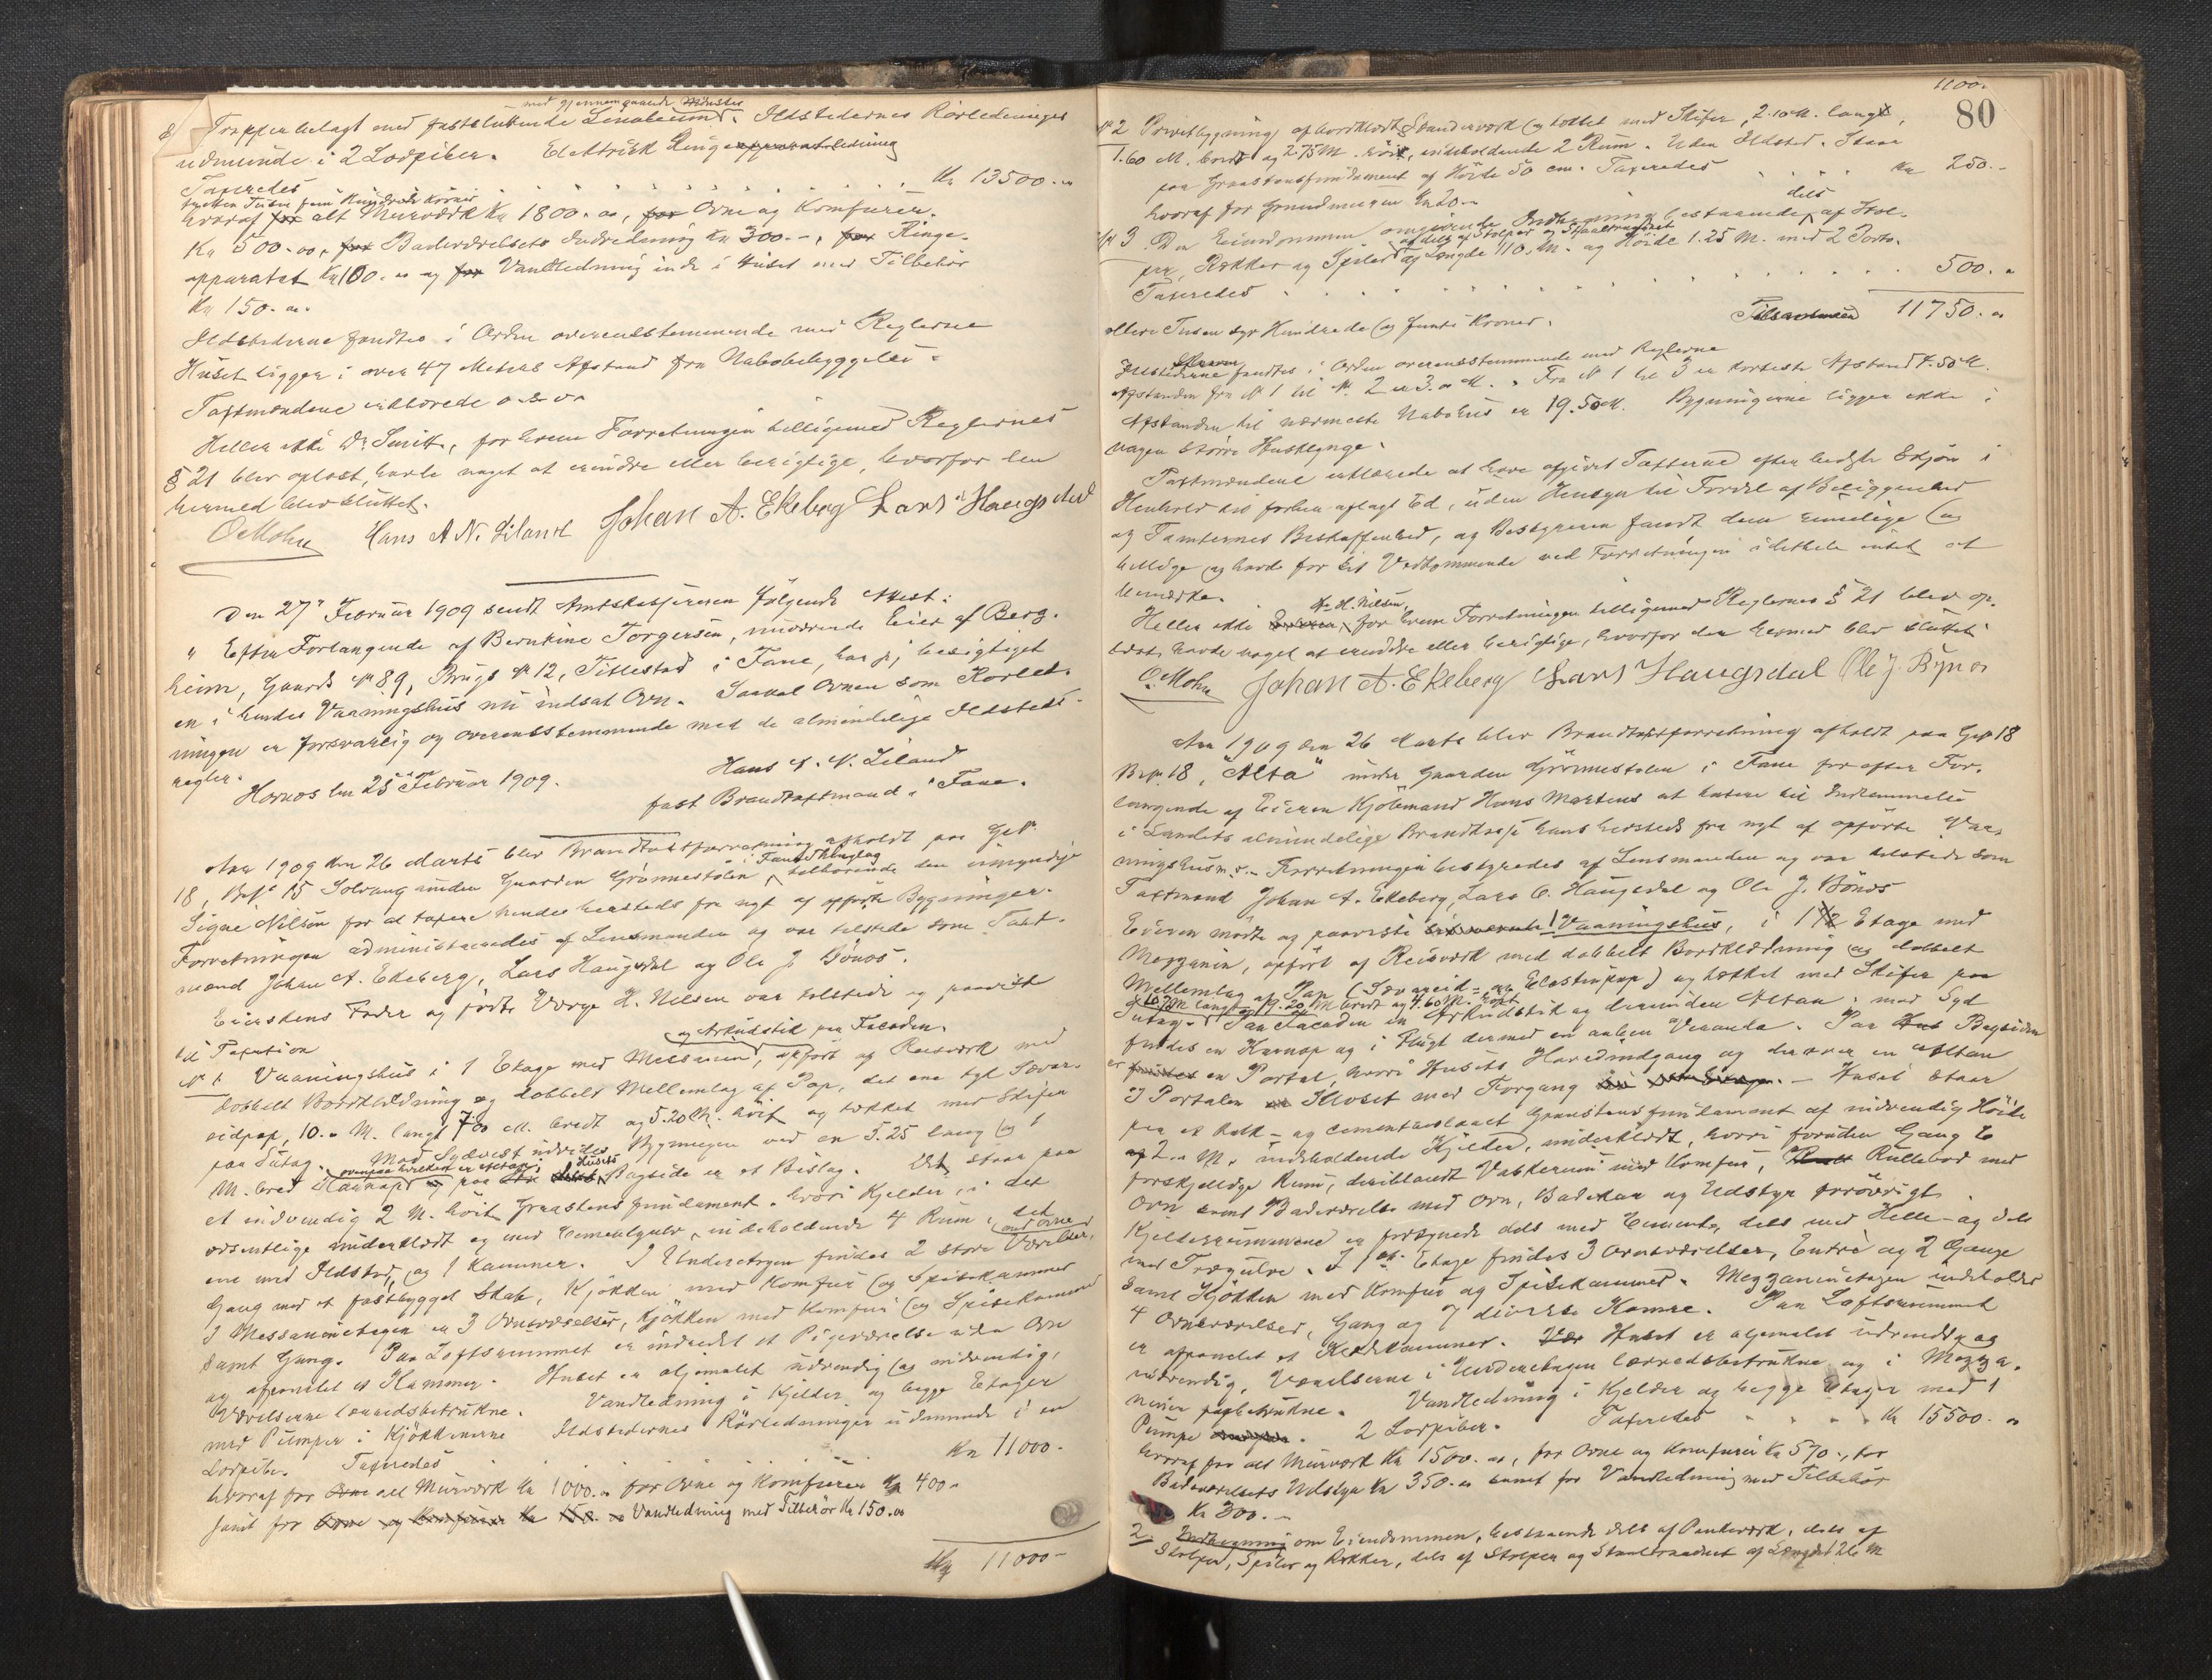 med gjennemgaaende Mönster
Trapper belagt med fastsluttende Linoleum. Ildstedernes Rörledninger
udmunde i 2 Lodpiber. Elektrisk Ringeapparatledning
Taxeredes Kr 13500.-
tretten Tusen fem Hundrede Kroner
hvoraf for alt Murværk Kr 1800.00, for Ovne og Komfurer
Kr 500.00, for Badeværelsets Indredning Kr 300.-, for Ringe-
apparatet Kr 100.00 og for Vandledning inde i Huset med Tilbehör
Kr 150.00.
Ildstederne fandtes i Orden overensstemmende med Reglerne
Huset ligger i over 47 Meters Afstand fra Nabobebyggelse.
Taxtmændene erklærede o.s.v.
Heller ikke Dr Smitt, for hvem Forretningen tilligemed Reglernes
§ 21 blev oplæst, havde noget at erindre eller berigtige, hvorfor den
hermed blev sluttet.
O Mohn Hans A N. Liland Johan A. Ekeberg Lars Haugsdal
Den 27de Februar 1909 sendt Amtskassereren följende Attest:
" Efter Forlangende af Berntine Torgersen, nuværende Eier af Berg-
heim, Gaards No 89, Brugs No 12, Tillestad i Fane, har jeg besigtiget
en i hendes Vaaningshus nu indsat Ovn. Saavel Ovnen som Rörled-
ningen er forsvarlig og overensstemmende med de almindelige Ildsteds-
regler.
Hornæs den 25de Februar 1909.
Hans A. N. Liland
fast Brandtaxtmand i Fane.
Aar 1909 den 26 Marts blev Brandtaxtforretning afholdt paa G.No
18, B.No 15 Solvang under Gaarden Grönnestölen i Fane Thinglag tilhörende den umyndige
Signe Nilsen for at taxere hendes hersteds fra nyt af opförte Bygninger.
Forretningen administreredes af Lensmanden og var tilstede som Taxt-
mænd Johan A. Ekeberg, Lars Haugsdal og Ole J. Bönæs.
Eierskens Fader og födte Værge H. Nilsen var tilstede og paaviste
til Taxation
og Arkudstik paa Facaden.
No 1. Vaaningshus i 1 Etage med Messanin, opfört af Reisværk med
dobbelt Bordklædning og dobbelt Mellemlag af Pap, det ene lyt Sævar-
eidpap, 10.00 M. langt 7.00 M. bredt og 5.20 M. höit og tækket med Skifer
paa Sutag. Mod Sydvest udvides Bygningen ved en 5.25 lang og 1
ovenpaa hvilken er Altan
M. bred Karnap og paa Husets Bagside er et Bislag. Det staar paa
et indvendig 2 M. höit Graastensfundament. hvori Kjelder, i det
væsentlige underklædt og med Cementgulv, indeholdende 4 Rum, det
ene med Ildsted, og 1 Kammer. I Underetagen findes 2 store Værelser, med Ovne
Gang med et fastbygget Skab, Kjökken med Komfur og Spisekammer
I Messaninetagen er 3 Ovnsværelser, Kjökken med Komfur og Spisekammer
samt Gang. Paa Loftsrummet er indredet et Pigeværelse uden Ovn
og afpanelet et Kammer. Huset er oljemalet udvendig og indvendig.
Værelserne lærredsbetrukne. Vandledning i Kjelder og begge Etager
med Pumper i Kjökkenerne Ildstedernes Rörledninger udmunde i en
Lodpibe. Taxeredes Kr 11000.-
hvoraf for Ovne alt Murværk Kr 1000.00 for Ovne og Komfurer Kr 400.-
samt for Ovne og Komfurer Kr 150.- Vandledning med Tilbehör Kr 150.00
Kr 11000-
80
1100.
No 2 Privetbygning af bordklædt Standerværk og tækket med Skifer, 2.10 M. langt,
1.60 M. bredt og 2.75 M. höit, indeholdende 2 Rum. Uden Ildsted. Staar
paa Graastensfundament af Höide 50 cm. Taxeredes Kr 250.-
hvoraf for Grundmuren Kr 20.-
No 3. Den Eiendommen omgivende Indhegning bestaaende dels af Stol-
og dels af Stolper og Staaltraadnet
per, Rækker og Spiler af Længde 110. M. og Höide 1.25 M. med 2 Porte.
Taxeredes 500.-
elleve Tusen syv Hundrede og femti Kroner. Tilsammen 11750.-
Ildstederne fandtes i Orden overensstemmende med Reglerne
Afstanden fra No 1 til No. 2 er 3.- M. Fra No 1 til 3 er korteste Afstand 4.50 M.
Afstanden til nærmeste Nabohus er 19.50 M. Bygningerne ligger ikke i
nogen större Husklynge.
Taxtmændene erklærede at have afgivet Taxterne efter bedste Skjön i
Henhold til forhen aflagt Ed, uden Hensyn til Fordel af Beliggenhed
og Tomternes Beskaffenhed, og Bestyreren fandt dem rimelige og
billige og havde for sit Vedkommende ved Forretningen idethele intet at
bemærke.
Heller ikke Eieren, Hr H. Nilsen, for hvem Forretningen tilligemed Reglernes § 21 blev op-
læst, havde noget at erindre eller berigtige, hvorfor den hermed blev sluttet.
O. Mohn Johan A. Ekeberg Lars Haugsdal Ole J. Bynæs
Aar 1909 den 26 Marts blev Brandtaxtforretning afholdt paa G.No 18
B.No. 18, "Alta" under Gaarden Grönnestölen i Fane for efter For-
langende af Eieren Kjöbmand Hans Martens at taxere til Indlemmelse
i Landets almindelige Brandkasse hans hersteds fra nyt af opförte Vaa-
ningshus m.v. Forretningen bestyredes af Lensmanden og var tilstede som
Taxtmænd Johan A. Ekeberg, Lars O. Haugsdal og Ole J. Bönæs
Eieren mödte og paaviste 1 Vaaningshus, i 1 1/2 Etage med
Mezzanin, opfört af Reisværk med dobbelt Bordklædning og dobbelt
Mellemlag af Pap (Sævareid- og Elastiquepap) og tækket med Skifer paa
10.75 M. langt, 9.20 M. bredt og 4.60 M. höit
Sutag. Paa Facaden en Arkudstik og derunder Altan. mod Syd
findes en Karnap og i Flugt dermed en aaben Veranda. Paa Bagsiden
er findes en Portal, hvori Husets Hovedindgang og derover en Altan
I Portalen er Kloset med Forgang. - Huset staar
paa et kalk- og cementbeslaaet Graastensfundament af indvendig Höide
af 2.- M. indeholdende Kjelder, underklædt, hvori foruden Gang 6
forskjellige Rum, deriblandt Vaskerum med Komfur, Rullebod med
Ovn samt Badeværelse med Ovn, Badekar og Udstyr forövrigt.
Kjelderrummene er forsynede dels med Cement-, dels med Helle- og dels
med Trægulve. I 1ste Etage findes 3 Ovnsværelser, Entré og 2 Gange
samt Kjökken med Komfur og Spisekammer. Mezzaninetagen indeholder
4 Ovnsværelser, Gang og 7 diverse Kamre. Paa Loftsrummet
er afpanelet et Klædekammer. Huset er oljemalet udvendig og
indvendig, Værelserne i Underetagen lærredsbetrukne og i Mezza-
ninen papbetrukne. Vandledning i Kjelder og begge Etager med 1
Pumpe. 2 Lodpiber. Taxeredes Kr 15500.-
hvoraf for alt Murværk Kr 1500.00, for Ovne og Komfurer Kr 570.-, for
Badeværelsets Udstyr Kr 350.- samt for Vandledning med Tilbehör
Kr 300.-
2. Indhegning om Eiendommen, bestaaende dels af Pukværk, dels af
Stolper, Spiler og Rækker, dels af Stolper og Staaltraadnet af Længde 126 M